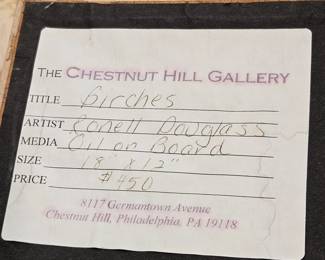 THE CHESTNUT HILL GALLERY
TITLE Birches
ARTIST Conell Douglass
MEDIA Oil on Board
SIZE 18" x 12"
PRICE $450
8117 Germantown Avenue
Chestnut Hill, Philadelphia, PA 19118